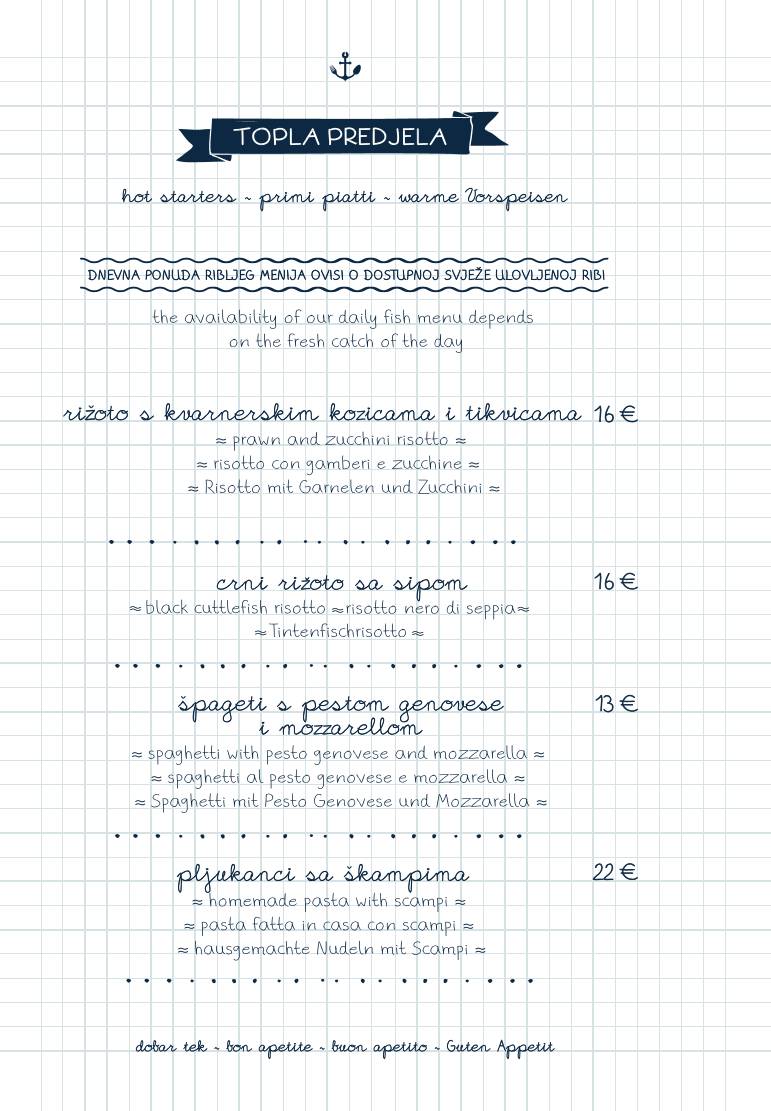 TOPLA PREDJELA
hot starters ~ primi piatti ~ warme Vorspeisen
DNEVNA PONUDA RIBLJEG MENIJA OVISI O DOSTUPNOJ SVJEŽE ULOVLJENOJ RIBI
the availability of our daily fish menu depends
on the fresh catch of the day
rižoto s kvarnerskim kozicama i tikvicama 16 €
≈ prawn and zucchini risotto ≈
≈ risotto con gamberi e zucchine ≈
≈ Risotto mit Garnelen und Zucchini ≈
crni rižoto sa sipom 16 €
≈ black cuttlefish risotto ≈risotto nero di seppia≈
≈ Tintenfischrisotto ≈
špageti s pestom genovese 13 €
i mozzarellom
≈ spaghetti with pesto genovese and mozzarella ≈
≈ spaghetti al pesto genovese e mozzarella ≈
≈ Spaghetti mit Pesto Genovese und Mozzarella ≈
pljukanci sa škampima 22 €
≈ homemade pasta with scampi ≈
≈ pasta fatta in casa con scampi ≈
≈ hausgemachte Nudeln mit Scampi ≈
dobar tek ~ bon apetite ~ buon apetito ~ Guten Appetit